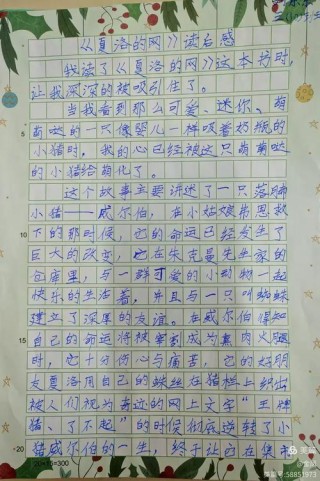 《夏洛的网》读后感
我读了《夏洛的网》这本书时,
让我深深的被吸引住了。
当我看到那么可爱、迷你、萌
萌哒的一只像婴儿一样吸着奶瓶的
5
小猪时,我的心已经被这只萌萌哒
的小猪给萌化了。
这个故事主要讲述了一只落脚
小猪——威尔伯,在小姑娘弗恩救
下的那时候,它的命运已经发生了
10
巨大的改变,它在朱克曼先生家的
仓库里,与一群可爱的小动物一起
快乐的生活着,并且与一只叫蜘蛛
建立了深厚的友谊。在威尔伯得知
自己的命运将被宰割成为熏肉火腿
15
时,它十分伤心与痛苦,它的好朋
友夏洛用自己的蛛丝在猪栏上织出
被人们视为奇迹的网上文字“王牌
猪、了不起”的时候彻底逆转了小
猪威尔伯的一生,终于让它在集
20
=300
搜狐号:58851973